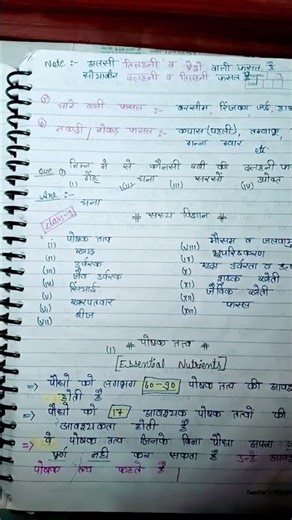 Note :- अलसी तिलहनी व रेशे वाली फसल है
सोयाबीन दलहनी व तिलहनी फसल है
⑤ चारे वाली फसल :- बरसीम, रिजका, जई,
⑥ नकदी / रोकड़ फसल :- कपास (पहली), तम्बाकू,
गन्ना ग्वार
etc.
Que ① निम्न में से कौनसी रबी की दलहनी फसल
(i) गेहूँ (ii) चना (iii) सरसों (iv) उपरोक्त
Ans :- चना
Class-2
# सस्य विज्ञान #
(i) पोषक तत्व
(ii) खाद
(iii) उर्वरक
(iv) जैव उर्वरक
(v) सिंचाई
(vi) खरपतवार
(vii) बीज
(viii) मौसम व जलवायु
(ix) भूपरिष्करण
(x) मृदा उर्वरता व
(xi) शुष्क खेती
(xii) जैविक खेती
(xiii) फसल
(1) # पोषक तत्व #
[Essential Nutrients]
⇒ पौधों को लगभग 60-90 पोषक तत्व की
होती है
⇒ पौधों को 17 आवश्यक पोषक तत्वों की
आवश्यकता होती है
⇒ वे पोषक तत्व जिनके बिना पौधा अपना
पूर्ण नही कर सकता है उन्हे
पोषक तत्व कहते है
Teacher's